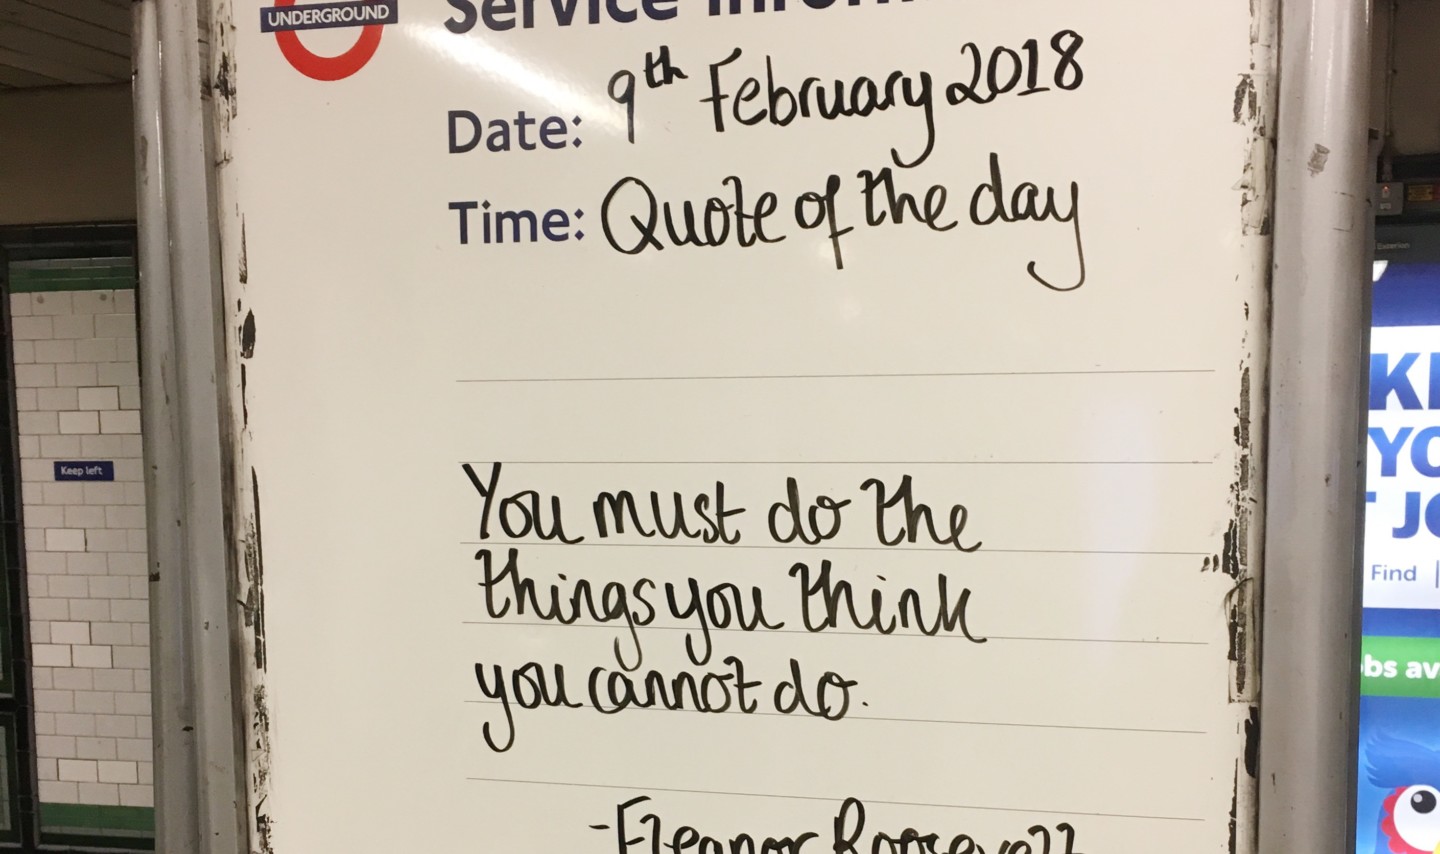 UNDERGROUND
Service
Date: 9th February 2018
Time: Quote of the day
You must do the
things you think
you cannot do.
-Eleanor Roosevelt
Keep left
Find